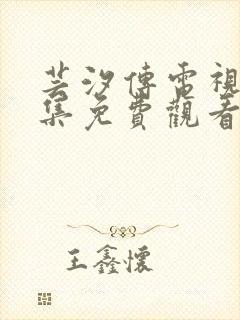 芸汐傳電視
集免費觀看
王鑫懷